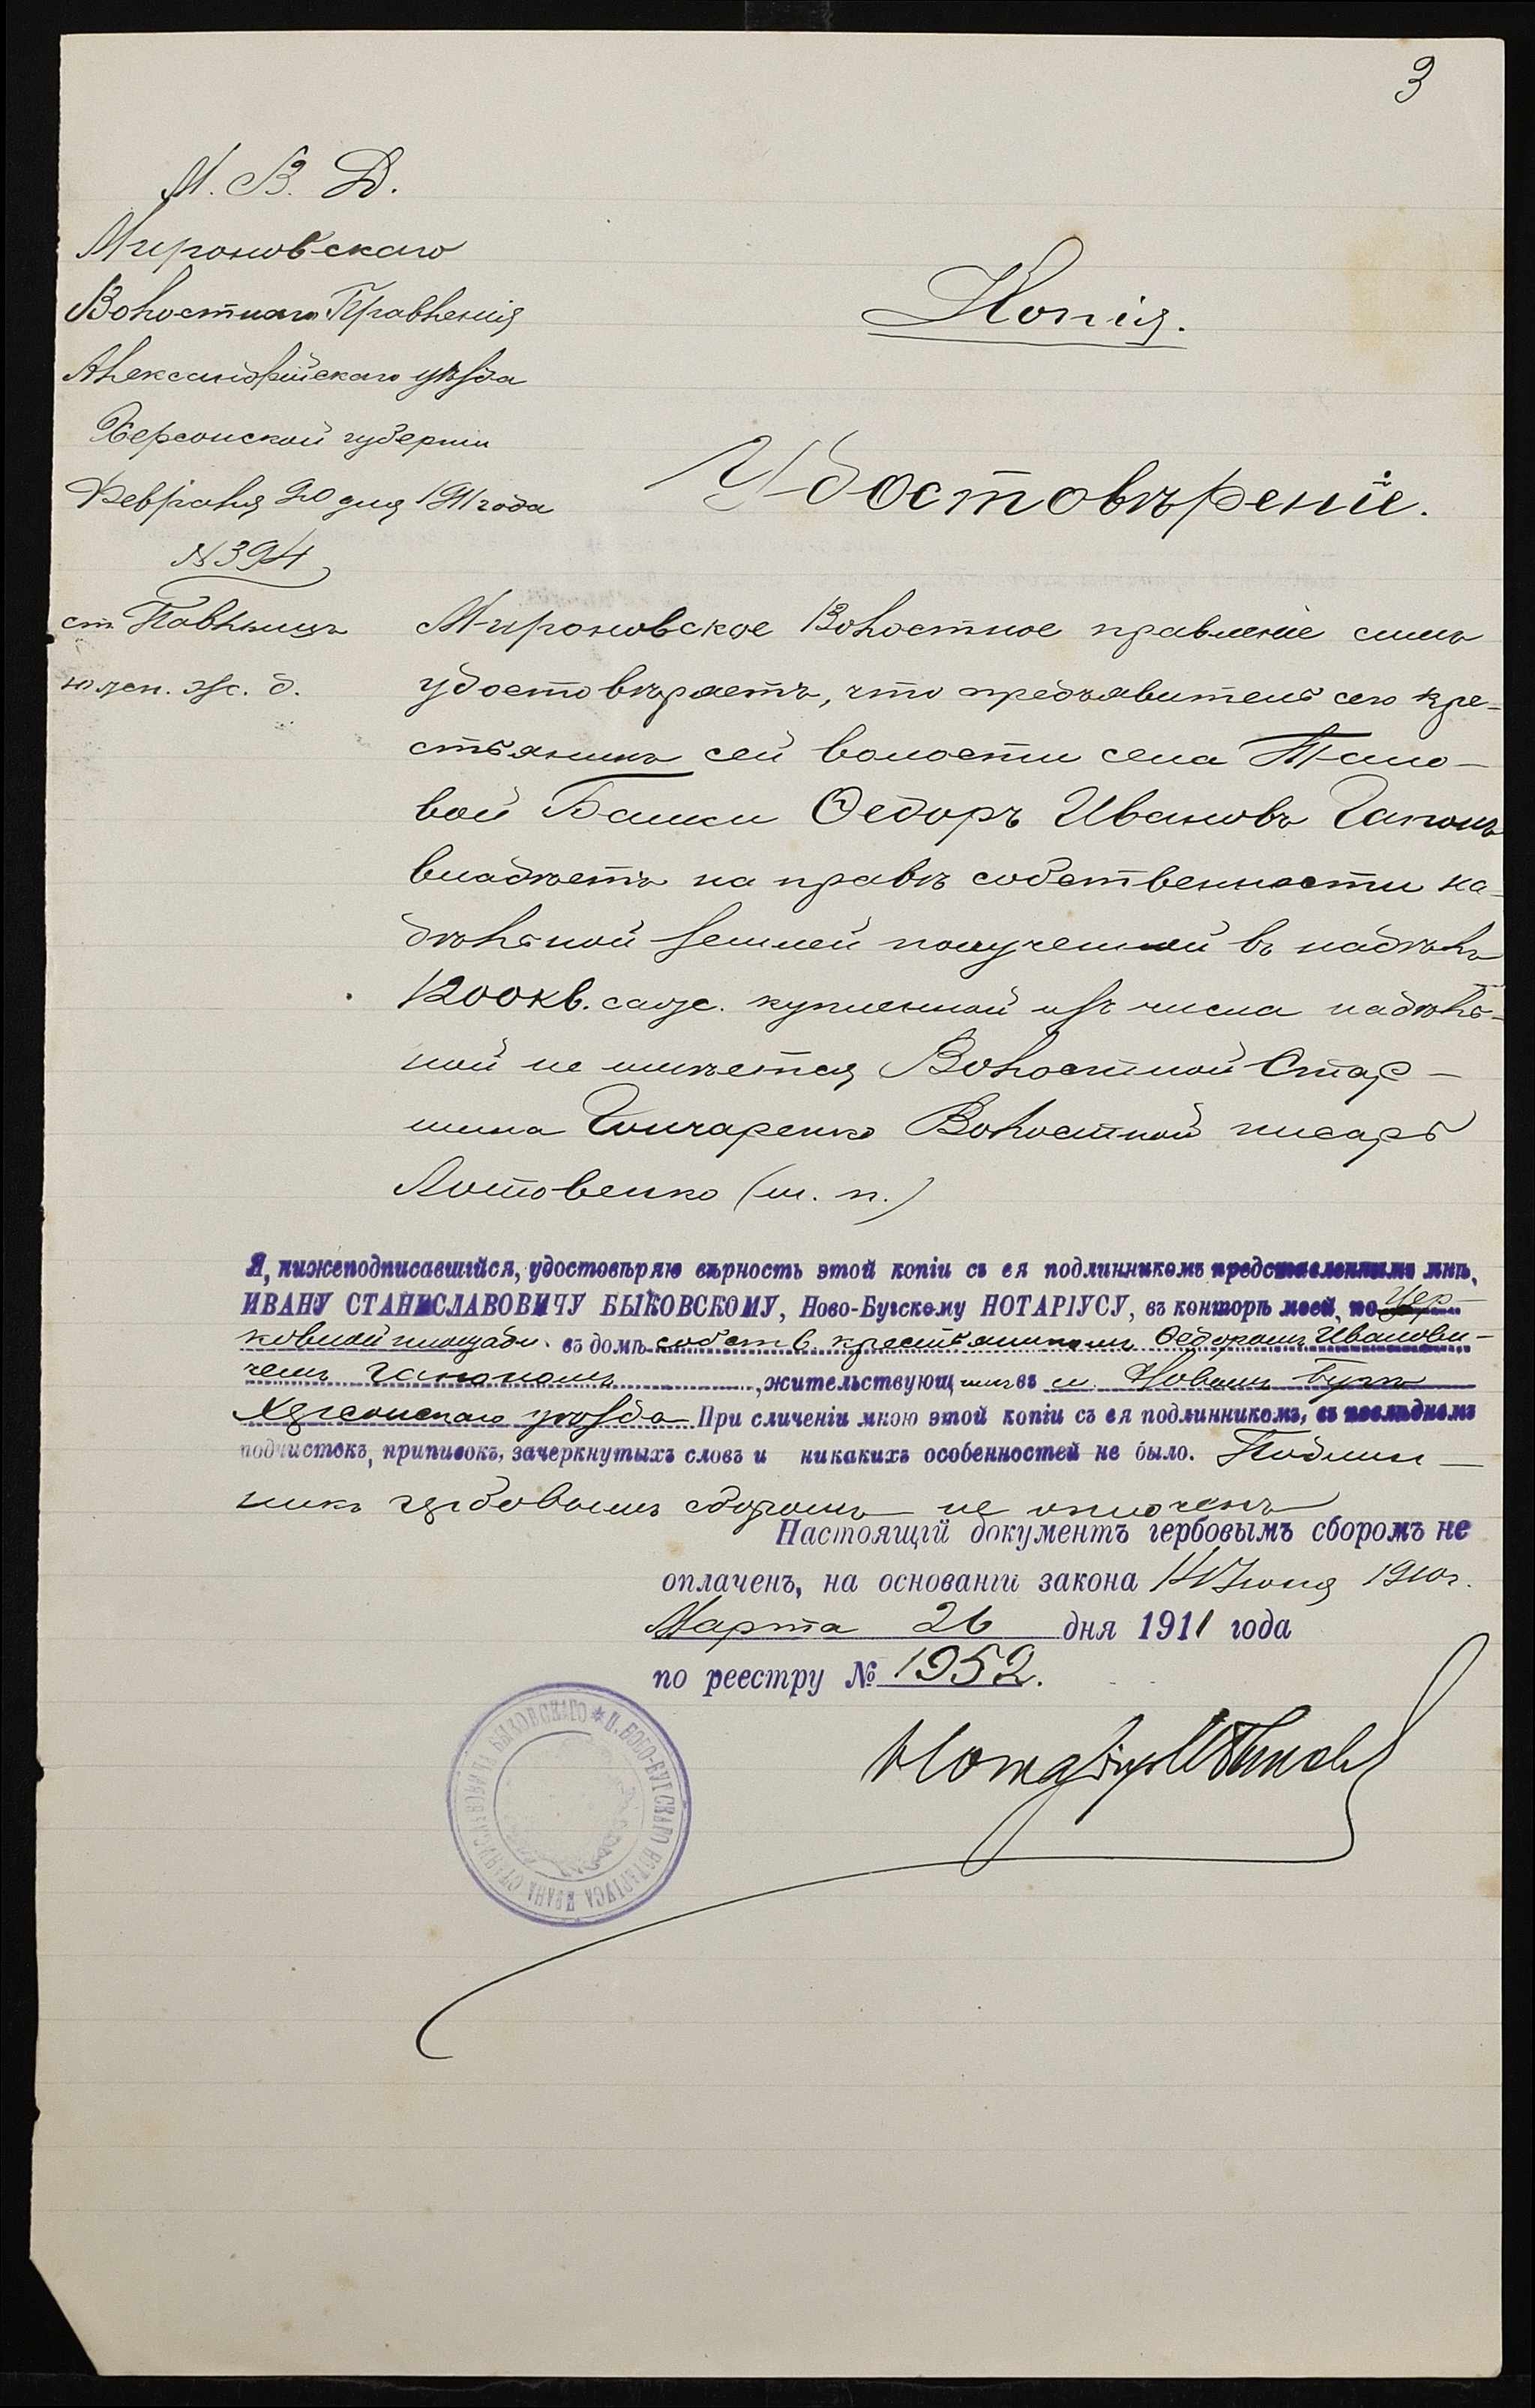 3
М. В. Д.
Мироновскаго
Волостнаго Правленія
Александрійскаго уѣзда
Херсонской губерніи
Февраля 20 дня 1911 года
№ 394
ст. Павлышъ
южн. ж. д.
Копія.
Удостовѣреніе.
Мироновское Волостное правленіе симъ
удостовѣряетъ, что предъявитель сего кре-
стьянинъ сей волости села
вой Балки Ѳедоръ Ивановъ Гапонъ
владѣетъ на правѣ собственности на-
дѣльной землей полученной въ надѣлъ
1200 кв. саж. купленной изъ числа надѣль-
ной не имѣется Волостной Стар-
шина Гончаренко Волостной писарь
(м. п.)
Я, нижеподписавшійся, удостовѣряю вѣрность этой копіи съ ея подлинникомъ представленнымъ мнѣ,
ИВАНУ СТАНИСЛАВОВИЧУ БЫКОВСКОМУ, Ново-Бугскому НОТАРІУСУ, въ конторѣ моей, по Цер-
ковной площади въ домѣ собств. крестьяниномъ Ѳедоромъ Иванови-
чемъ Гапономъ, жительствующимъ въ м. Новомъ Бугѣ
Херсонскаго уѣзда При сличеніи мною этой копіи съ ея подлинникомъ, въ послѣднемъ
подчистокъ, приписокъ, зачеркнутыхъ словъ и никакихъ особенностей не было. Подлин-
никъ гербовымъ сборомъ не оплоченъ
Настоящій документъ гербовымъ сборомъ не
оплаченъ, на основаніи закона 14 Іюня 1910 г.
Марта 26 дня 1911 года
по реестру № 1952.
Нотаріусъ
* Н. НОВО-БУГСКАГО НОТАРІУСА ИВАНА СТАНИСЛАВОВИЧА БЫКОВСКАГО